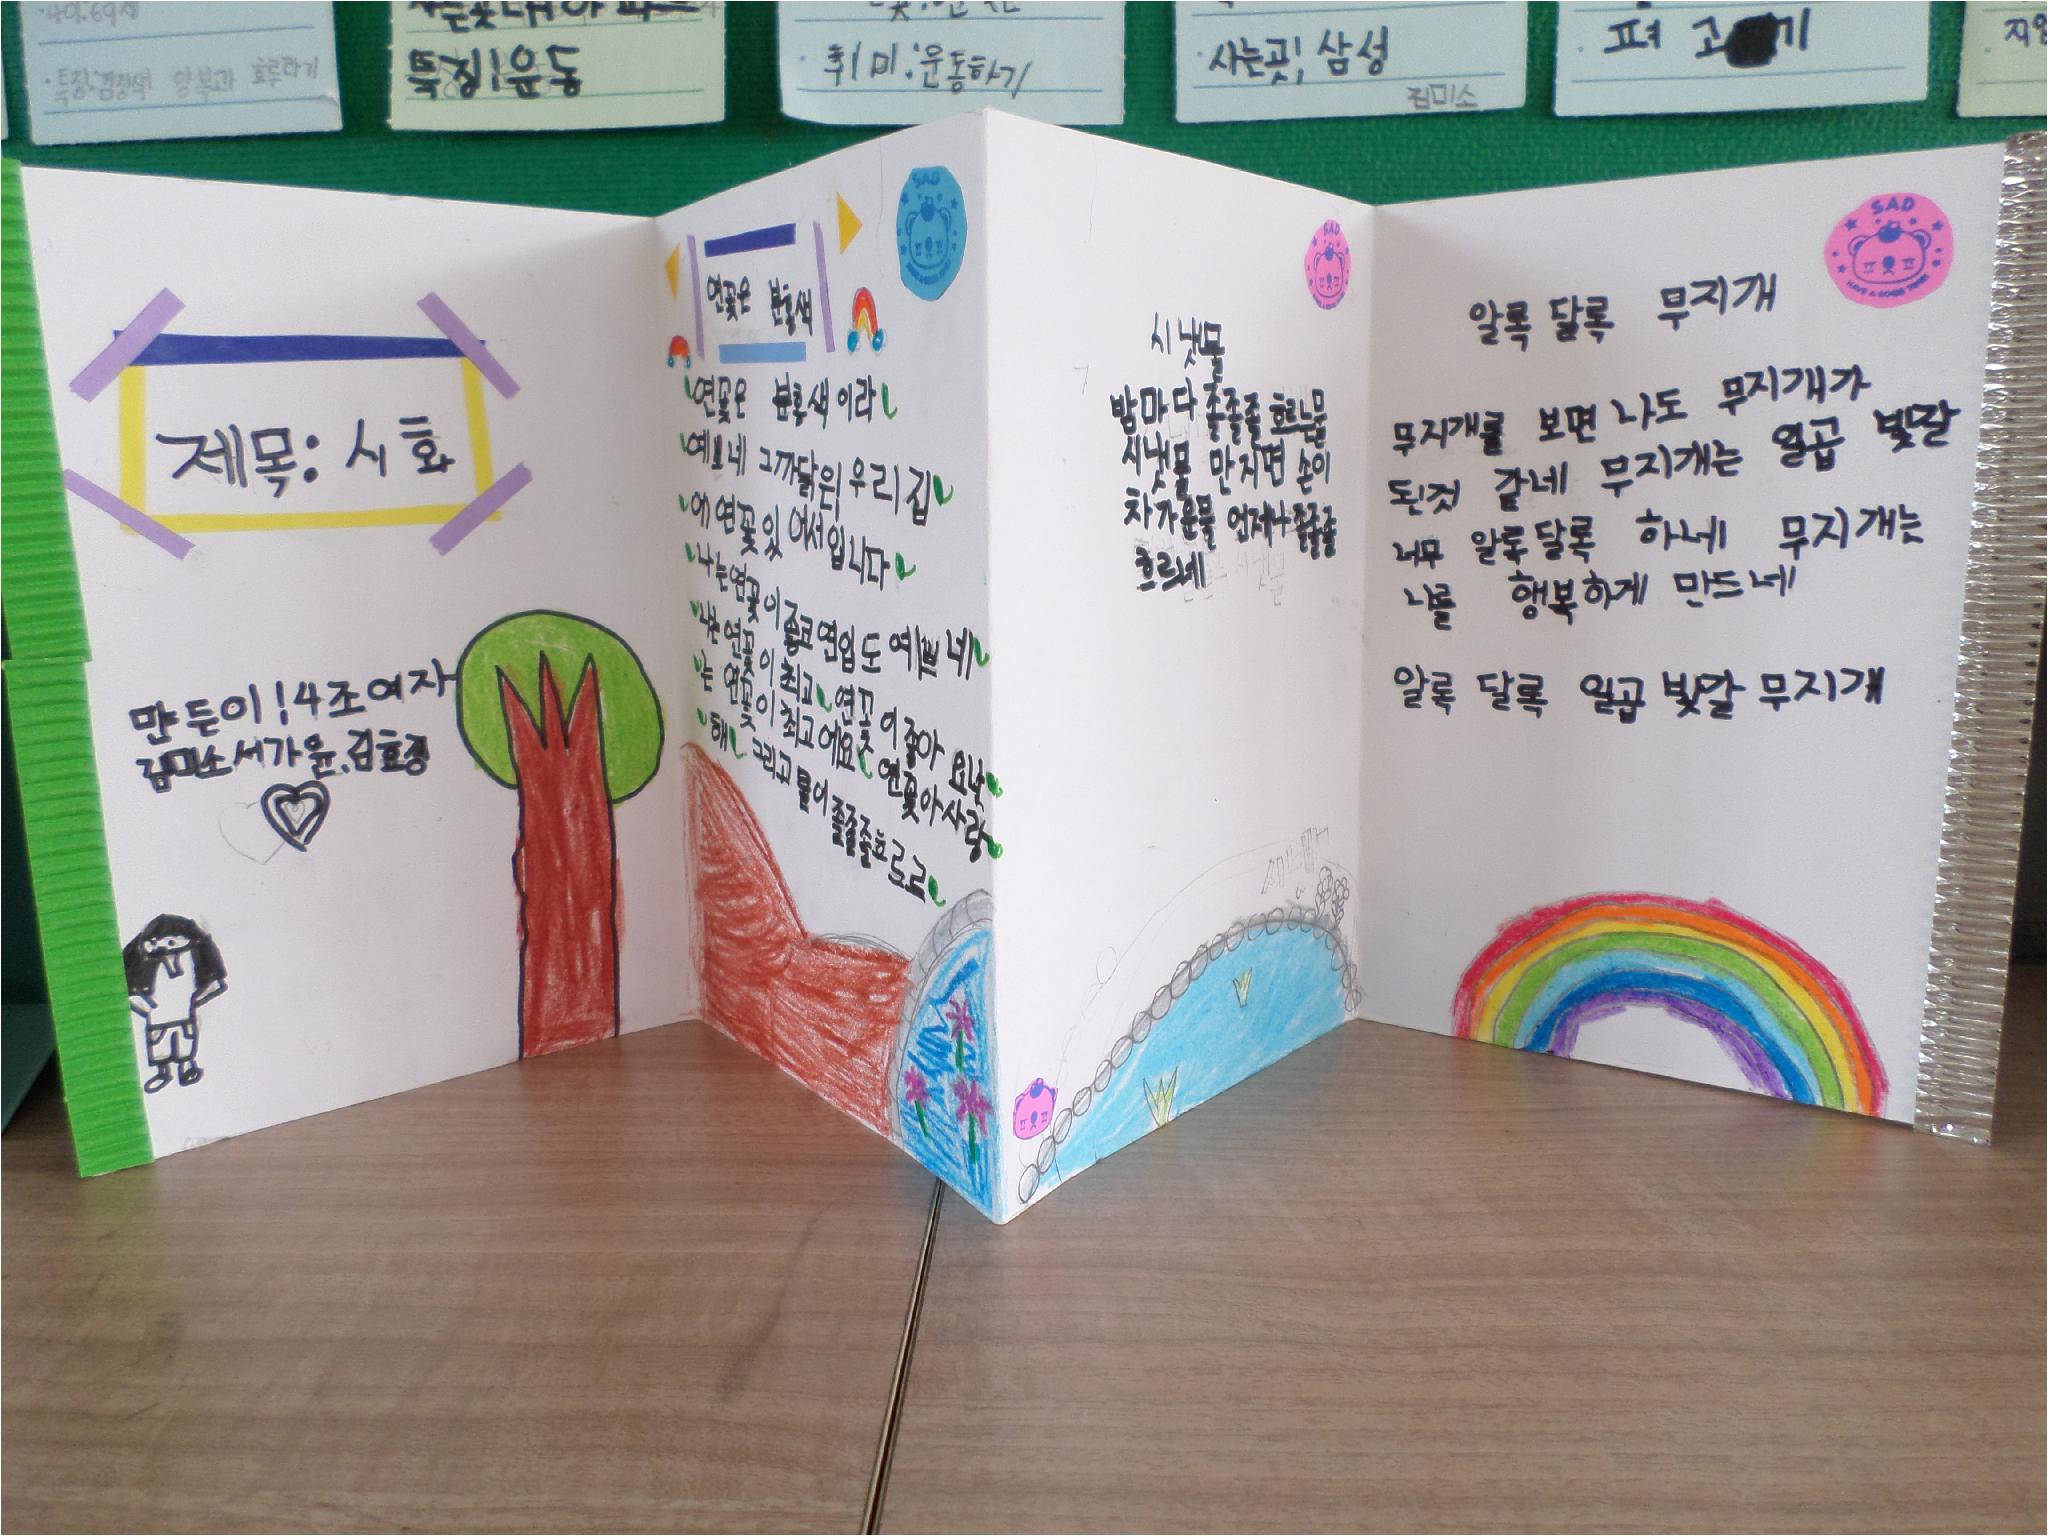 ·특징:검정색 양복과 흐르타기
특징!운동
·취미:운동하기
·사는곳! 삼성
김미소
제목: 시화
만든이!4조여자
김미소.서가윤.김효경
SAD
연꽃은 분홍색
연꽃은 분홍색이라
예쁘네 그까닭은 우리집
에 연꽃있어서입니다
나는연꽃이좋고연입도예쁘네
나는 연꽃이 최고 연꽃이좋아요나
는 연꽃이 최고에요 연꽃아사랑
해 그리고 물이졸졸졸흐르고
SAD
시냇물
밤마다 졸졸졸 흐르는물
시냇물 만지면 손이
차가운물 언제나졸졸졸
흐르네
SAD
HAVE A GOOD TIME!
알록달록 무지개
무지개를 보면 나도 무지개가
된것 같네 무지개는 일곱 빛깔
너무 알록달록 하네 무지개는
나를 행복하게 만드네
알록 달록 일곱 빛깔 무지개